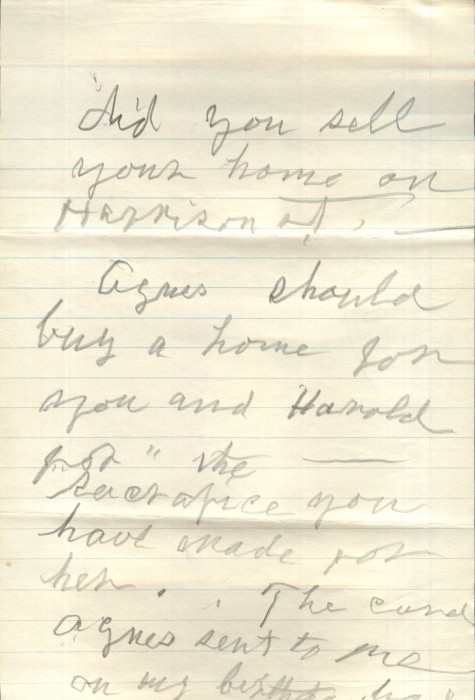 Did you sell
your home on
Harrison st,
Agnes should
buy a home for
you and Harold
for " the
sacrafice you
have made for
her. The card
Agnes sent to me
on my birthday